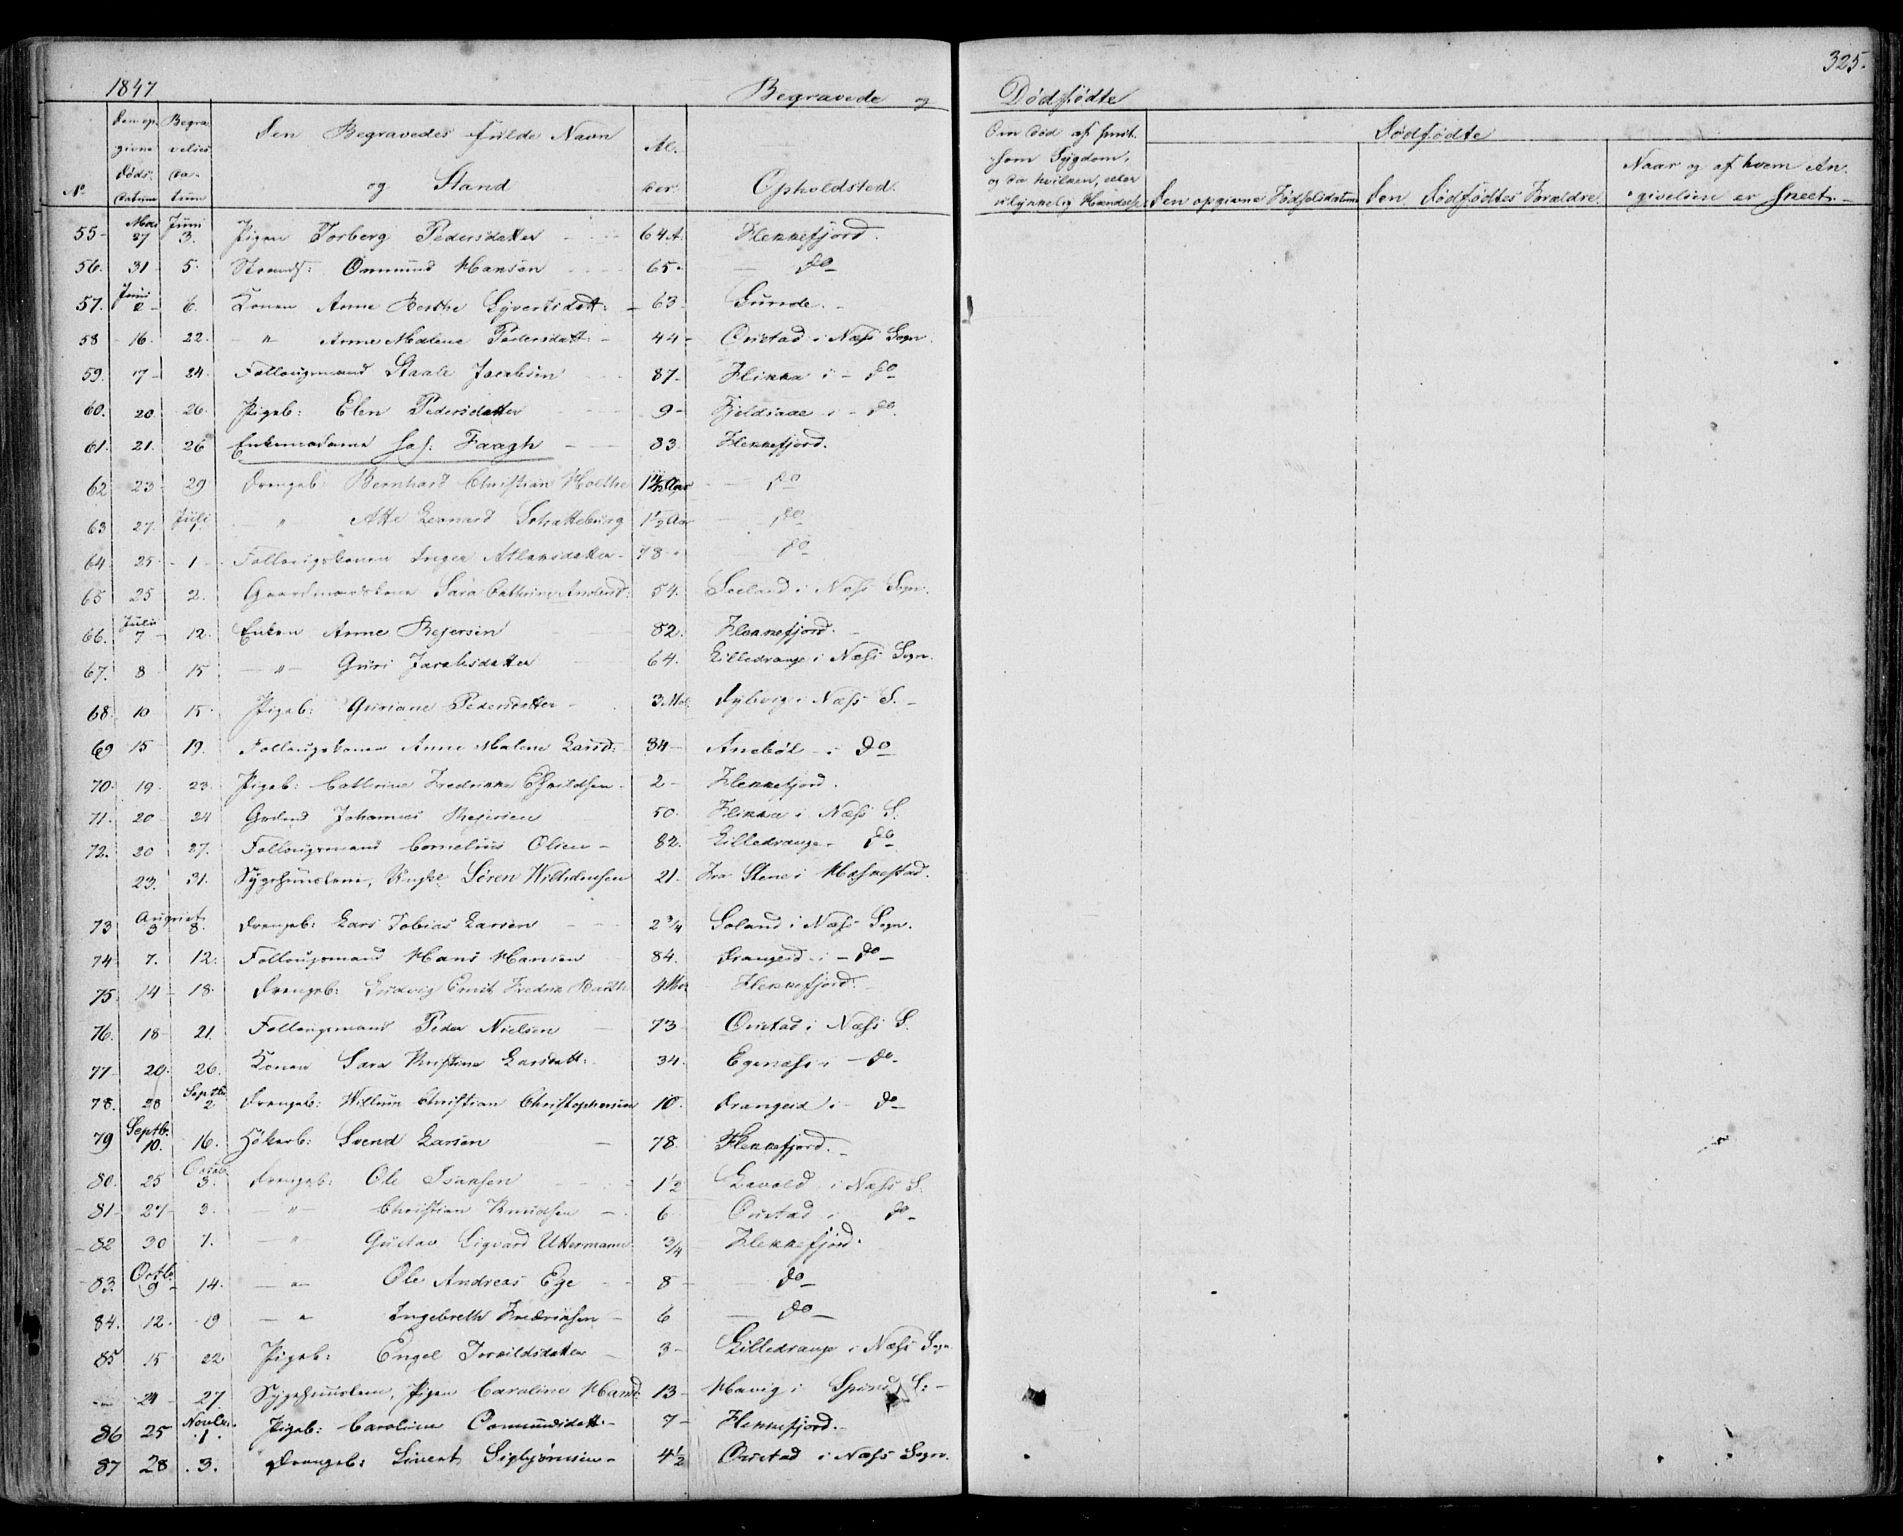 325.
1847 Begravede og Dødfødte
No Den opgivne Døds-datum Begravelses Datum Den Begravedes fulde Navn og Stand Alder Opholdsted. Om død af smitsom Sygdom, og da hvilken, eller ulykkelig Hændelse Dødfødte
Den opgivne Fødselsdatum Den Dødfødtes Forældre. Naar og af hvem Angivelsen er skeet.
55 Mai 27 Juni 3. Pigen Torberg Pedersdatter 64 A. Flekkefjord.
56. 31 5. Strands: Omund Hansen 65 do
57. Juni 2 6. Konen Anne Berthe Syvertsdatt: 63 Sunde.
58 16. 22. " Anne Malene Pedersdatt: 44 Oustad i Næss Sogn.
59. 17 24. Follougsmand Staale Jacobsen 87. Flikka i do
60. 20 26. Pigeb: Elen Pedersdatter 9 Fjeldsaae i do.
61. 21. 26 Enkemadame Faagh 83. Flekkefjord.
62 23 29 Drengeb: Bernhard Christian Aar do
63 27. Juli " Atte Leonard 1½ Aar do
64 25 1 Follougskonen Inger Atlaksdatter 78 do
65 25 2. Gaardmandskone Sara Cathrine Andersd: 54. Seland i Næss Sogn.
66. Juli 7 12. Enken Anne Rejersen 82. Flekkefjord.
67. 8 15 " Guri Jacobsdatter 64. Lilledrange i Næss Sogn.
68. 10 15. Pigeb: Guriane Pedersdatter 3 Md. Dybvig i Næss S.
69 15 19. Follougskonen Anne Malene Larsd: 84 Anebøl i do
70. 19 23. Pigeb: Cathrine Fredrikke Eskildsen 2 Flekkefjord.
71. 20 24 Grdmd Johannes Rejersen 50. Flikka i Næss S.
72. 20 27. Follougsmand Cornelius Olsen 82. Lilledrange do
23. 31. Sygehuuslem, Søren Wilhelmsen 21. Fra Stene i
73 August 3 8. Drengeb: Lars Tobias Larsen 2¾ Soland i Næss Sogn.
74 7. 12. Follougsmand Hans Hansen 84. Drangeid i do
75. 14 18. Drengeb: Ludvig Ernst Fredrik Barth 4 Md. Flekkefjord.
76. 18 21. Follougsmand Peder Nielsen 73 Oustad i Næss S.
77 20. 26. Konen Sara Kristine Larsdatt: 34. Egenæss i do.
78. 28 Septbr 2 Drengeb: Willum Christian Christophersen 10. Drangeid i do
79 Septb. 10. 16. Høkerb: Svend Larsen 78. Flekkefjord.
80. 25 Octob. 3. Drengeb: Ole Isaksen 1½ Lavold i Næss S.
81 27 3. " Christian Knudsen 6 Oustad i do
82 30 7. " Gustav Sigvard Uttermann ¾ Flekkefjord.
83. Octb. 9 14. " Ole Andreas Ege 8 do
84. 12. 19 " Ingebreth Fredriksen 6 do
85 15 22 Pigeb: Engel Torkildsdatter 3 Lilledrange i Næss Sogn
24 27. Sygehuuslem, Pigen Caroline Hansd: 13 Havig i Spinds S:
86 25 Novbr. 1. Pigeb: Caroline Osmundsdatt: 7 Flekkefjord.
87 28 3. Drengeb: Sivert Sigbjørnsen 4½ Oustad i Næss Sogn.